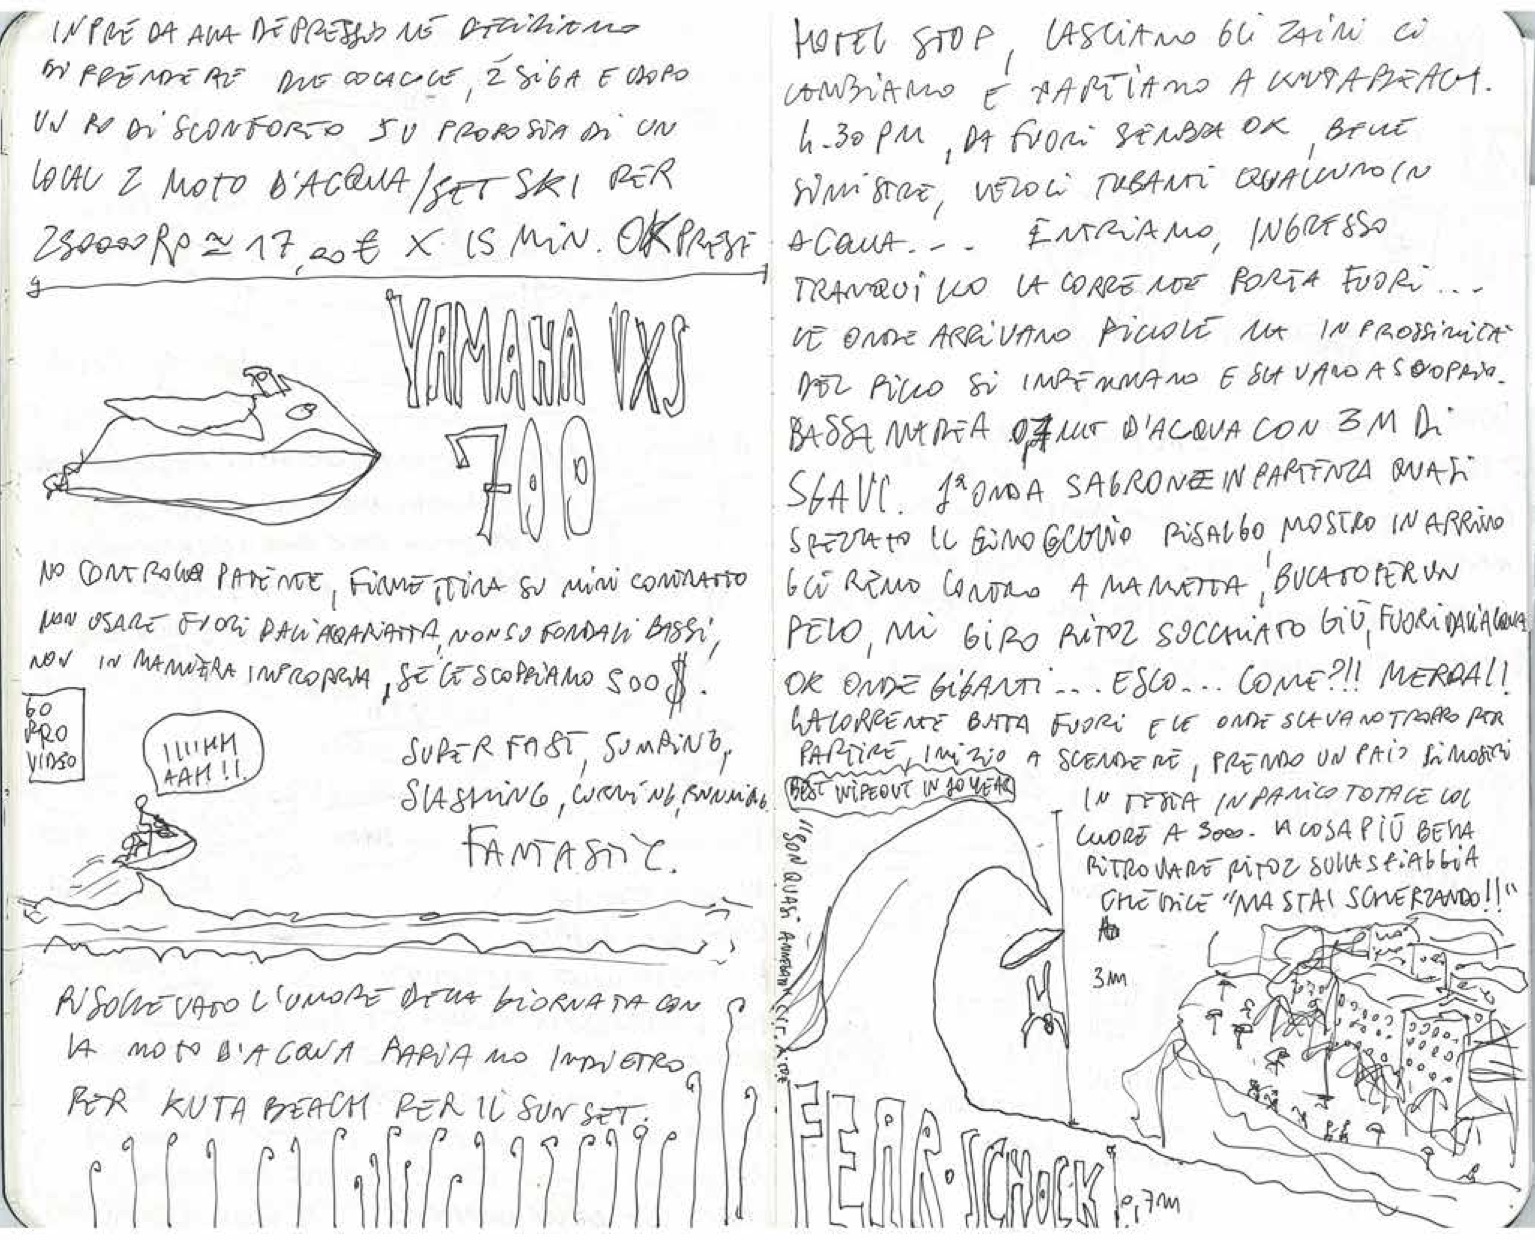 IN PREDA ALLA DEPRESSIONE DECIDIAMO
DI PRENDERE DUE COCACOLE, 2 SIGA E DOPO
UN PO DI SCONFORTO SU PROPOSTA DI UN
LOCAL 2 MOTO D'ACQUA/JET SKI PER
250000 RP ≃ 17,00€ X 15 MIN. OK PRESE
YAMAHA VXS
700
NO CONTROLLO PATENTE, FIRMETTINA SU MINI CONTRATTO
NON USARE FUORI DALL'AQARIATTA, NON SU FONDALI BASSI,
NON IN MANIERA IMPROPRIA, SE LE SCOPPIAMO 500 $.
GO
PRO
VIDEO
IIIIHH
AAH!!
SUPER FAST, JUMPING,
SLASHING, CURVING, RUNNING
FANTASTIC.
RISOLLEVATO L'UMORE DELLA GIORNATA CON
LA MOTO D'ACQUA PARTIAMO INDIETRO
PER KUTA BEACH PER IL SUNSET.
HOTEL STOP, LASCIAMO GLI ZAINI CI
CAMBIAMO E PARTIAMO A KUTA BEACH.
4.30 PM, DA FUORI SEMBRA OK, BELLE
SINISTRE, VELOCI TUBANTI QUALCUNO IN
ACQUA... ENTRIAMO, INGRESSO
TRANQUILLO LA CORRENTE PORTA FUORI...
LE ONDE ARRIVANO PICCOLE MA IN PROSSIMITÀ
DEL PICCO SI IMPENNANO E SCAVANO A SCOPPIO.
BASSA MAREA 0,7 MT D'ACQUA CON 3 M DI
SCAVI. 1ª ONDA SABRONE IN PARTENZA QUASI
SPEZZATO IL GINOCCHIO RISALGO, MOSTRO IN ARRIVO
GLI REMO CONTRO A MANETTA, BUCATO PER UN
PELO, MI GIRO RITOZ SUCCHIATO GIÙ, FUORI DALL'ACQUA
OK ONDE GIGANTI... ESCO... COME?!! MERDA!!
LA CORRENTE BUTTA FUORI E LE ONDE SCAVANO TROPPO PER
PARTIRE, INIZIO A SCENDERE, PRENDO UN PAIO DI MOSTRI
IN TESTA IN PANICO TOTALE COL
CUORE A 3000. LA COSA PIÙ BELLA
RITROVARE RITOZ SULLA SPIAGGIA
CHE DICE "MA STAI SCHERZANDO!!"
BEST WIPEOUT IN 10 YEAR
"SON QUASI ANNEGATO
3M
FEAR. SCHOCK!
0,7m